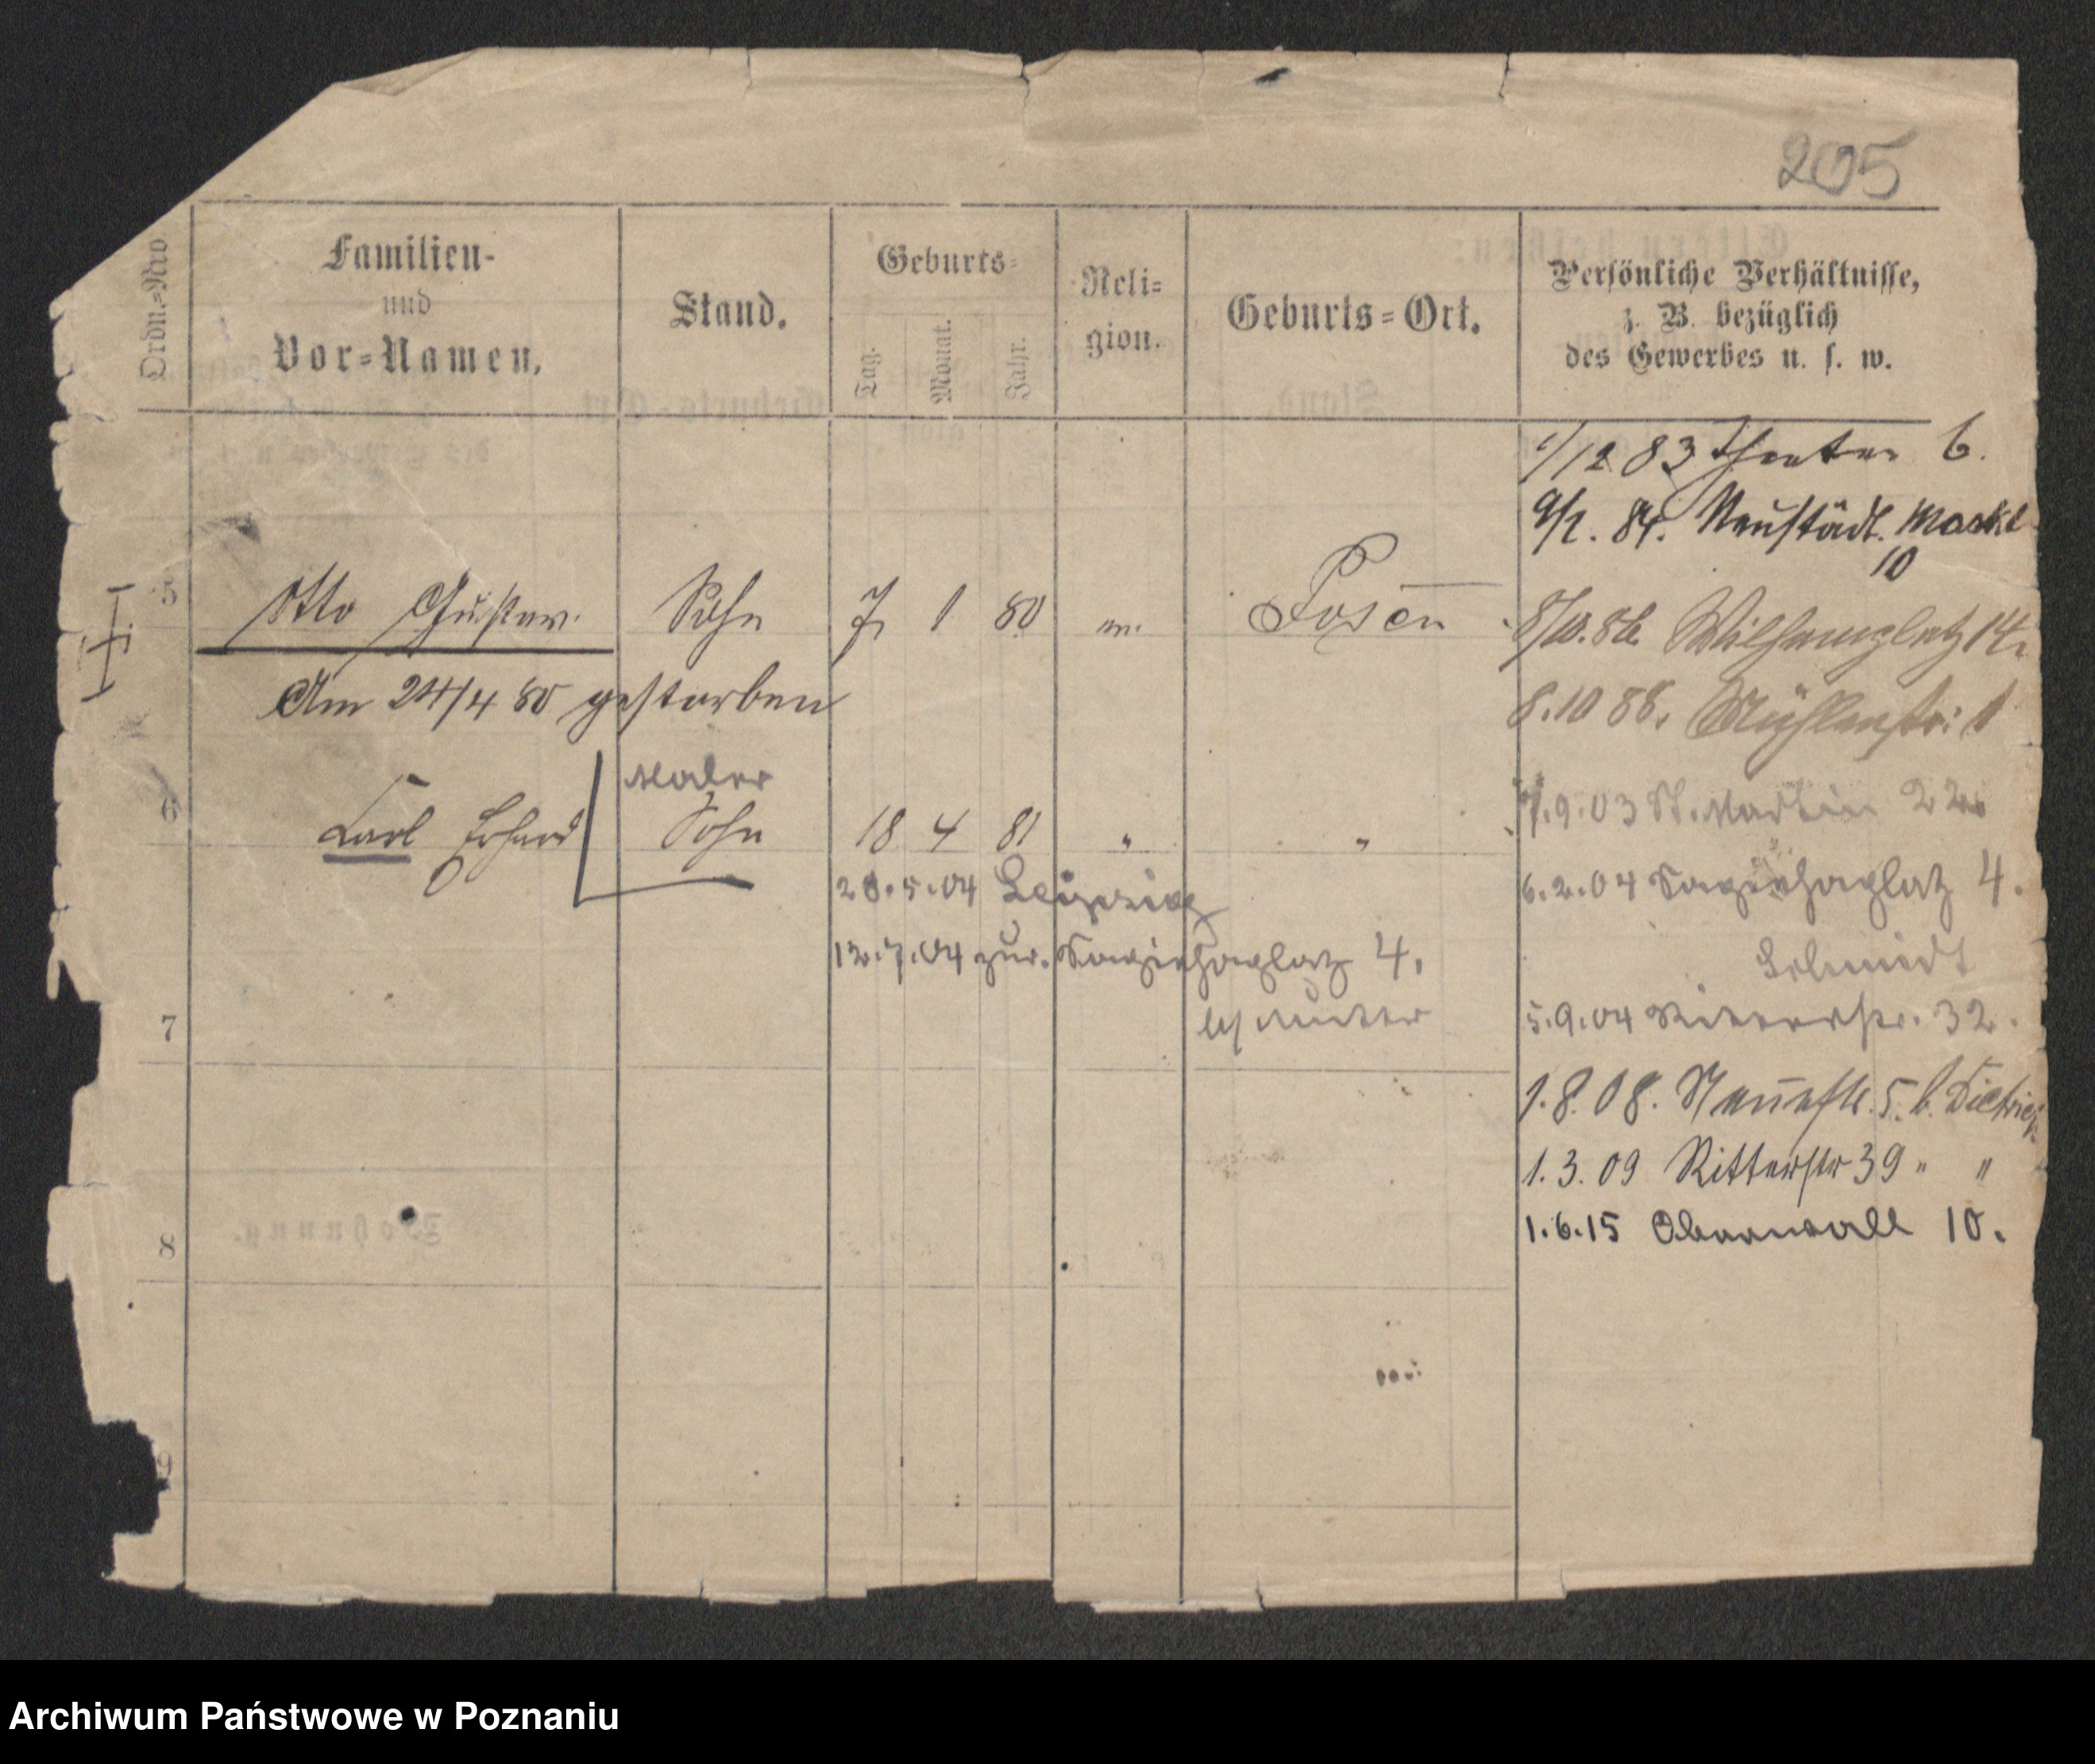 205
Ordn.=Nro.
Familien-
und
Vor=Namen.
Stand.
Geburts=
Tag.
Monat.
Jahr.
Reli=
gion.
Geburts=Ort.
Persönliche Verhältnisse,
z. B. bezüglich
des Gewerbes u. s. w.
1/12 83 Theater 6.
9/1. 84. Neustädt. Markt
10
5 Otto Gustav. Sohn 7 1 80 ev. Posen
8/10. 86 Wilhemplatz 14
Am 24/4 80 gestorben
8.10 88. Mühlenstr: 1
Maler
6 Carl Erhard Sohn 18 4 81 " "
7.9.03 St. Martin 22
28.5.04 Leipzig
6.2.04 Sapiehaplatz 4.
Schmidt
12.7.04 zur. Sapiehaplatz 4.
b/ Mutter
7
5.9.04 Ritterstr. 32.
1.8.08. Neuestr. 5. b. Dietrich
1.3.09 Ritterstr 39 " "
8
1.6.15 Oberwall 10.
9
Archiwum Państwowe w Poznaniu